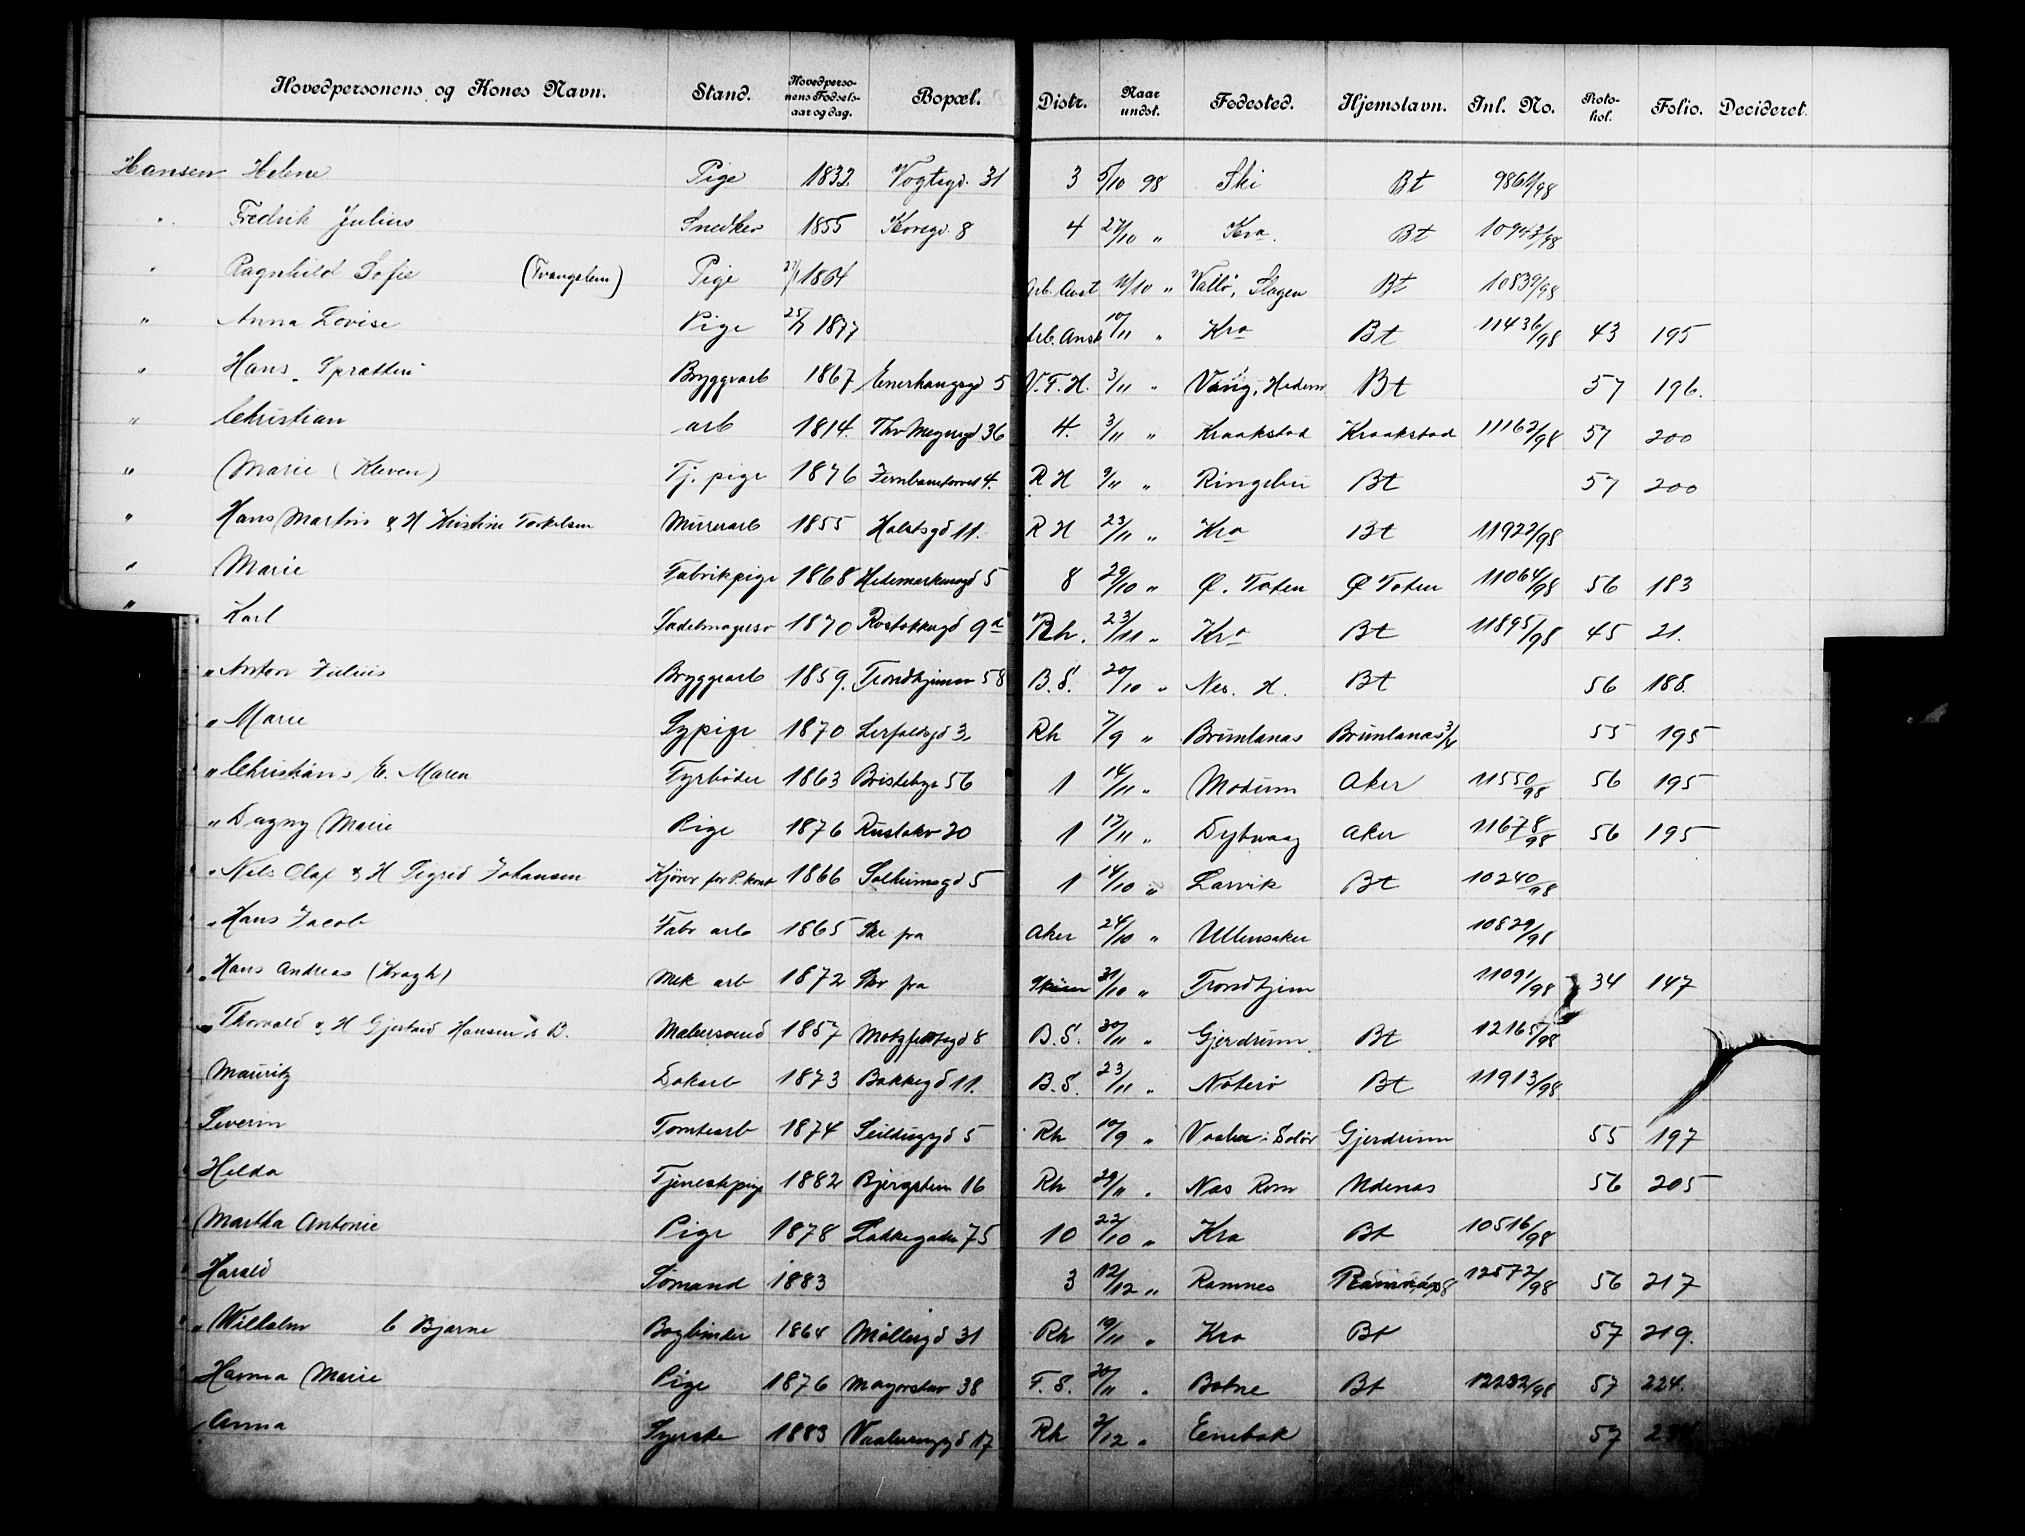 Hovedpersonens og Kones Navn. Stand. Hovedperso-nens Fødsels-aar og dag. Bopæl. Distr. Naar undst. Fødested. Hjemstavn. Inl. No. Proto-kol. Folio. Decideret.
Hansen Helene Pige 1832 Vogtsgd. 31 3 5/10 98 Ski Bt 9864/98
" Fredrik Julius Snedker 1855 Korsgd. 8 4 27/10 " Kra. Bt 10943/98
" Ragnhild Sofie (Tvangslem) Pige 1864 Arb. Anst /10 " Vallø, Slagen Bt 10839/98
" Anna Lovise Pige 25/7 1877 Arb. Anst 10/11 " Kra Bt 11436/98 43 195
" Hans Bryggarb 1867 Enerhaugsgd 5 V.F.H. 3/11 " Vang, Hedem. Bt 57 196.
" Christian arb 1814. Thv Meyersgd 36 4. 3/11 " Kraakstad Kraakstad 11162/98 57 200
" Marie (Kleven) Tj. pige 1876 Jernbanetorvet 4. R H 9/11 " Ringebu Bt 57 200
" Hans Martin & H Kristine Torkelsen Murerarb 1855 Holstsgd 11. R H 23/11 " Kra Bt 11922/98
" Marie Fabrikpige 1868 Hedemarkensgd 5 8 29/10 " Ø. Toten Ø Toten 11064/98 56 183
" Karl Sadelmagersv 1870 Rostokkergd 9a Rh. 23/11 " Kra Bt 11895/98 45 21.
" Anton Julius Bryggearb 1859. Trondhjemsv 58 B.S. 20/10 " Nes. H. Bt 56 188.
" Marie Sypige 1870 Lerfaldsgd 3 Rh 7/9 " Brunlanæs Brunlanæs 55 195
" Christian & E. Maren Fyrbøder 1863 Bispebyr 56 1 14/11 " Modum Aker 11550/98 56 195
" Dagny Marie Pige 1876 Rustøkv 20 1 17/11 " Dybvaag Aker 11678/98 56 195
" Nels Olaf & H Sigrid Johansen Kjører for P.kont 1866 Solheimsgd 5 1 14/10 " Larvik Bt 10240/98
" Hans Jacob Fabr arb 1865 Skr fra Aker 24/10 " Ullensaker 10829/98
" Hans Andreas (Kragh) Mek arb 1872 Skr fra Skien 31/10 " Trondhjem 11091/98 34 147
" Thorvald & H Gjertrud Hansen & B. Malersvend 1857 Motzfeldtsgd 8 B.S. 30/11 " Gjerdrum Bt 12165/98
" Mauritz Dokarb 1873 Bakkegd 11. B.S. 23/11 " Nøterø Bt 11913/98
" Severin Tomtearb 1874 Seildugsgd 5 Rh 10/9 " Vaaler i Solør Gjerdrum 55 197
" Hilda Tjenestepige 1882 Bjergstien 16 Rh 29/11 " Nas Rom Udenæs 56 205
" Martha Antonie Pige 1878 Lakkegaden 75 10 22/10 " Kra Bt 10516/98
" Harald Sømand 1883 3 12/12 " Ramnes Ramnæs 12572/98 56 217
" Wilhelm & Bjarne Bogbinder 1864 Møllergd 31 Rh 19/11 " Kra Bt 57 219.
" Hanna Marie Pige 1876 Majorstuv 38 F.S. 30/11 " Botne Bt 12232/98 57 224.
" Anna Syerske 1883 Vaalerenggd 17 Rh 2/12 " Enebak 57